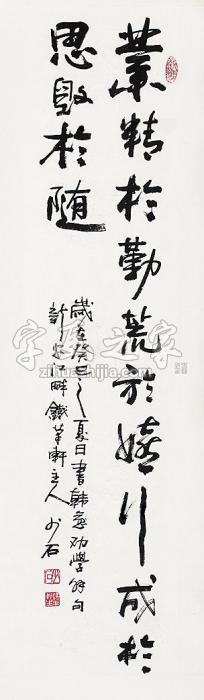 業精於勤荒於嬉行成於
思毀於随
歲在癸巳之夏日書韓愈勸學解句
於
畔鐵筆軒主人少石
字画之家
zihuazhijia.com